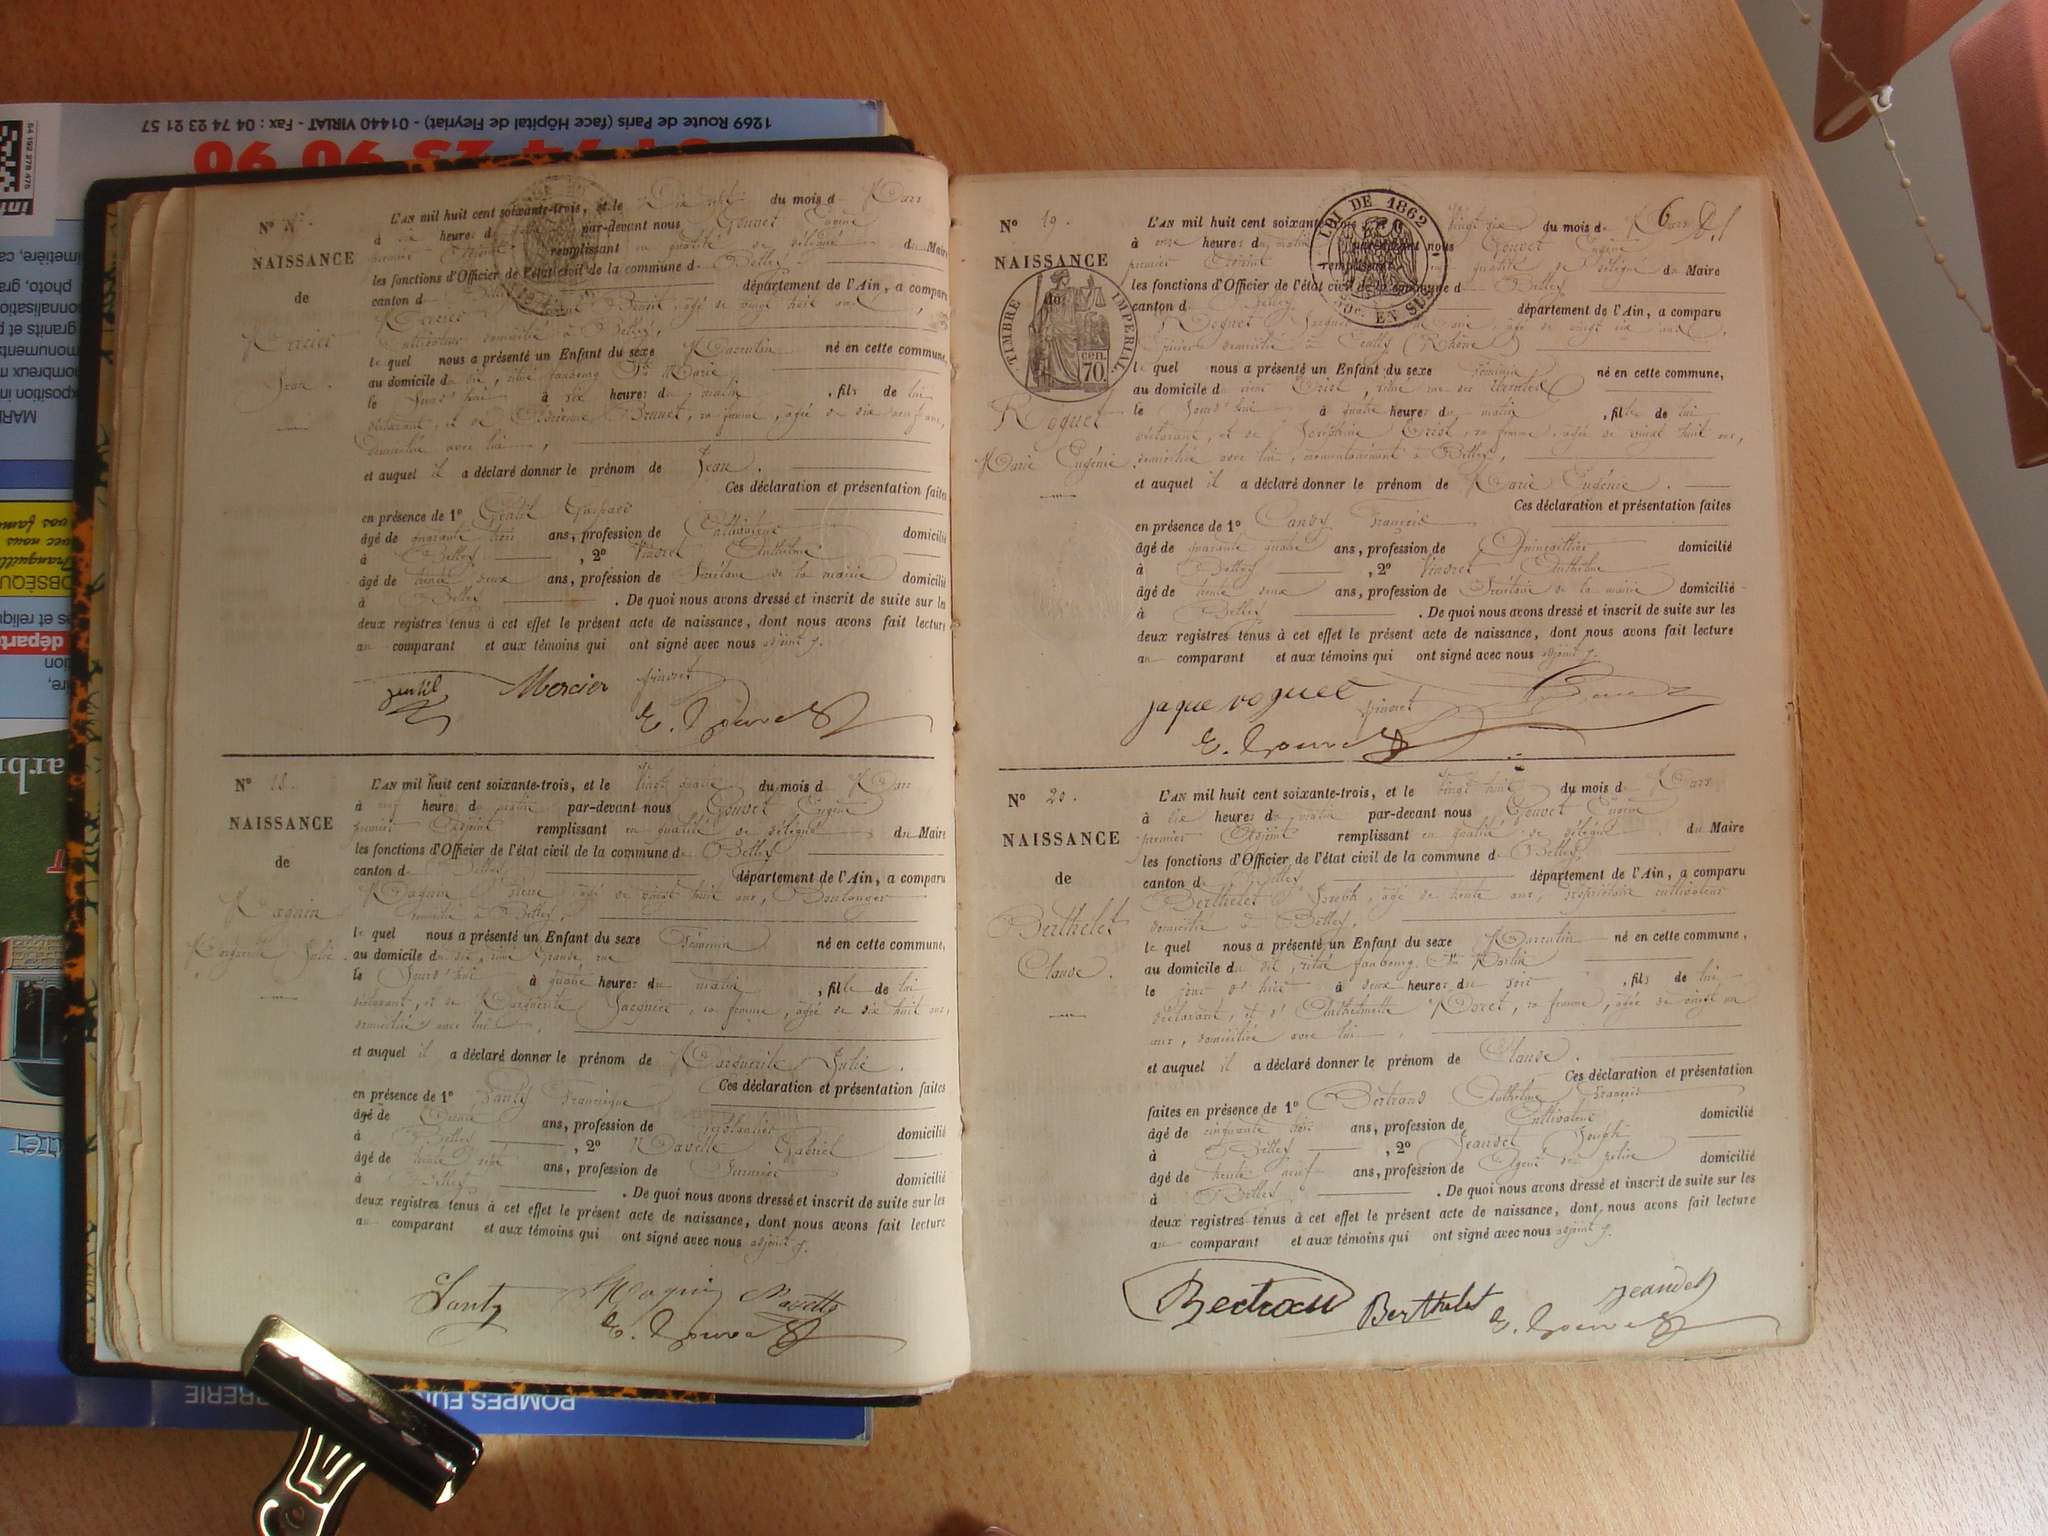 1269 Route de Paris (face Hôpital de Fleyriat) - 01440 VIRIAT - Fax : 04 74 23 21 57
N° 17.
NAISSANCE
de
Mercier
Jean.
L'AN mil huit cent soixante-trois, et le Dix sept du mois de Mars
à six heures du par-devant nous Gouvet Eugène
premier Adjoint remplissant en qualité de délégué du Maire
les fonctions d'Officier de l'état civil de la commune de Belley
canton de Belley département de l'Ain, a comparu
Mercier Benoit, âgé de vingt huit ans,
domicilié à Belley,
lequel nous a présenté un Enfant du sexe Masculin né en cette commune,
au domicile du dit, situé faubourg Ste Marie
le jourd'hui à six heures du matin, fils de lui
déclarant, et de Brunet, sa femme, âgée de dix neuf ans,
domiciliée avec lui,
et auquel il a déclaré donner le prénom de Jean.
Ces déclaration et présentation faites
en présence de 1° Gentil Gaspard
âgé de quarante trois ans, profession de Cultivateur domicilié
à Belley, 2° Vinoret Anthelme
âgé de trente deux ans, profession de Secrétaire de la mairie domicilié
à Belley. De quoi nous avons dressé et inscrit de suite sur les
deux registres tenus à cet effet le présent acte de naissance, dont nous avons fait lecture
au comparant et aux témoins qui ont signé avec nous adjoint
gentil Mercier Vinoret
E. Gouvet
N° 18.
NAISSANCE
de
Magnin
Marguerite Julie.
L'AN mil huit cent soixante-trois, et le vingt quatre du mois de Mars
à heures du matin par-devant nous Gouvet Eugène
premier Adjoint remplissant en qualité de délégué du Maire
les fonctions d'Officier de l'état civil de la commune de Belley
canton de Belley département de l'Ain, a comparu
Magnin Pierre, âgé de vingt huit ans, Boulanger
domicilié à Belley,
lequel nous a présenté un Enfant du sexe Féminin né en cette commune,
au domicile du dit, situé Grande rue
le jourd'hui à quatre heures du matin, fille de lui
déclarant, et de Marguerite Jacquier, sa femme, âgée de dix huit ans,
domiciliée avec lui,
et auquel il a déclaré donner le prénom de Marguerite Julie.
Ces déclaration et présentation faites
en présence de 1° Santy
âgé de ans, profession de domicilié
à Belley, 2° Navette Gabriel
âgé de trente sept ans, profession de domicilié
à Belley. De quoi nous avons dressé et inscrit de suite sur les
deux registres tenus à cet effet le présent acte de naissance, dont nous avons fait lecture
au comparant et aux témoins qui ont signé avec nous adjoint
Santy Magnin Navette
E. Gouvet
N° 19.
NAISSANCE
de
TIMBRE IMPERIAL
70 cen.
LOI DE 1862
EN SUS
6
Roguet
Marie Eugénie
L'AN mil huit cent soixante-trois vingt six du mois de Mars
à onze heures du matin par-devant nous Gouvet Eugène
premier Adjoint remplissant en qualité de délégué du Maire
les fonctions d'Officier de l'état civil de la commune de Belley
canton de Belley département de l'Ain, a comparu
Roguet Jacques, âgé de vingt six ans,
Epicier domicilié à (Rhône)
lequel nous a présenté un Enfant du sexe Féminin né en cette commune,
au domicile du, située rue des
le jourd'hui à quatre heures du matin, fille de lui
déclarant, et de Joséphine, sa femme, âgée de vingt huit ans,
domiciliée avec lui, momentanément à Belley,
et auquel il a déclaré donner le prénom de Marie Eugénie.
Ces déclaration et présentation faites
en présence de 1° François
âgé de quarante quatre ans, profession de Quincaillier domicilié
à Belley, 2° Vinoret Anthelme
âgé de trente deux ans, profession de Secrétaire de la mairie domicilié
à Belley. De quoi nous avons dressé et inscrit de suite sur les
deux registres tenus à cet effet le présent acte de naissance, dont nous avons fait lecture
au comparant et aux témoins qui ont signé avec nous adjoint
jaque roguet Vinoret
E. Gouvet
N° 20.
NAISSANCE
de
Berthelet
Claude.
L'AN mil huit cent soixante-trois, et le vingt huit du mois de Mars
à dix heures du matin par-devant nous Gouvet Eugène
premier Adjoint remplissant en qualité de délégué du Maire
les fonctions d'Officier de l'état civil de la commune de Belley
canton de Belley département de l'Ain, a comparu
Berthelet Joseph, âgé de trente ans, propriétaire cultivateur
domicilié à Belley,
lequel nous a présenté un Enfant du sexe Masculin né en cette commune,
au domicile du dit, situé faubourg St Martin
le jour d'hier à deux heures du soir, fils de lui
déclarant, et d'Anthelmette Moret, sa femme, âgée de vingt un
ans, domiciliée avec lui,
et auquel il a déclaré donner le prénom de Claude.
Ces déclaration et présentation
faites en présence de 1° Bertrand Anthelme François
âgé de cinquante trois ans, profession de Cultivateur domicilié
à Belley, 2° Jeandet Joseph
âgé de trente neuf ans, profession de Agent de police domicilié
à Belley. De quoi nous avons dressé et inscrit de suite sur les
deux registres tenus à cet effet le présent acte de naissance, dont nous avons fait lecture
au comparant et aux témoins qui ont signé avec nous adjoint
Bertrand Berthelet Jeandet
E. Gouvet